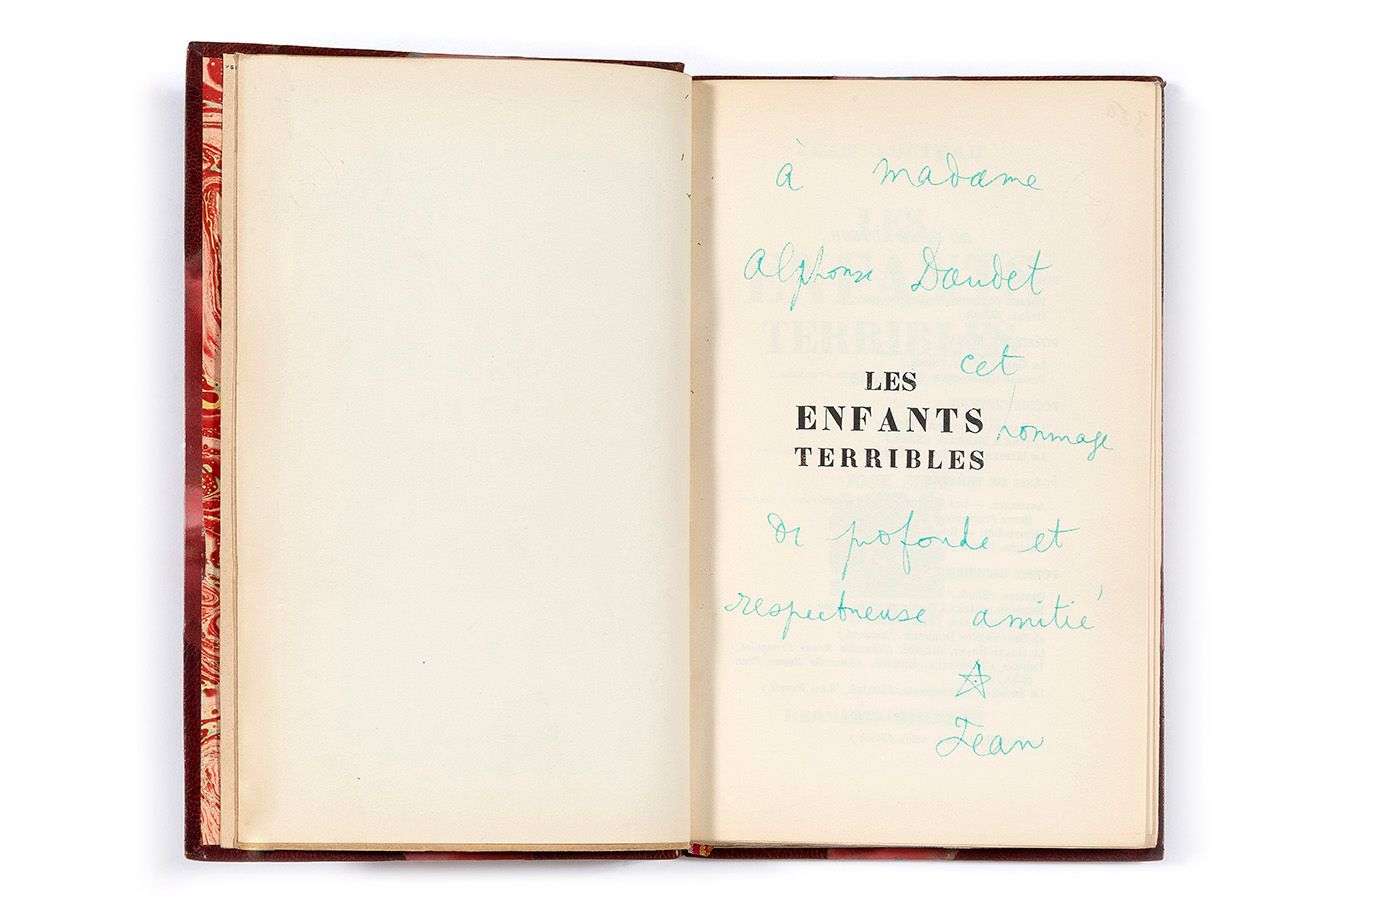 à madame
Alphonse Daudet
cet
LES
ENFANTS hommage
TERRIBLES
de profonde et
respectueuse amitié
Jean